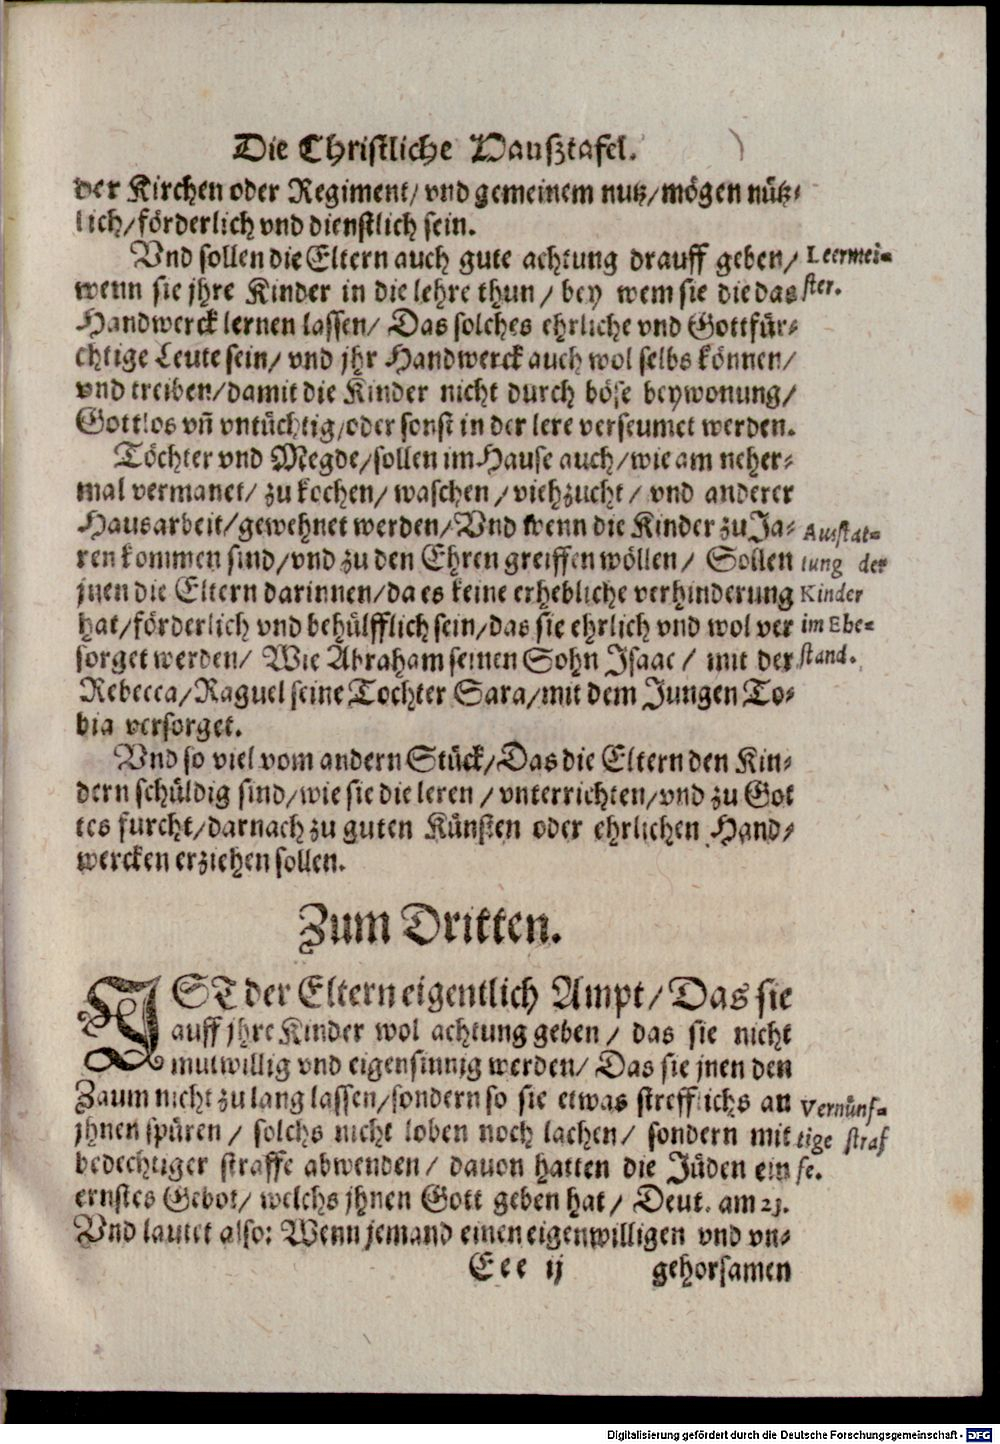 Die Christliche Haußtafel.
der Kirchen oder Regiment/ vnd gemeinem nutz/ mögen nütz-
lich/ förderlich vnd dienstlich sein.
Vnd sollen die Eltern auch gute achtung drauff geben/
wenn sie jhre Kinder in die lehre thun / bey wem sie die das
Handwerck lernen lassen/ Das solches ehrliche vnd Gottfür-
chtige Leute sein/ vnd jhr Handwerck auch wol selbs können/
vnd treiben/ damit die Kinder nicht durch böse beywonung/
Gottlos vñ vntüchtig/ oder sonst in der lere verseumet werden.
Leermei-
ster.
Töchter vnd Megde/ sollen im Hause auch/ wie am neher-
mal vermanet/ zu kochen/ waschen / viehzucht / vnd anderer
Hausarbeit/ gewehnet werden/ Vnd wenn die Kinder zu Ja-
ren kommen sind/ vnd zu den Ehren greiffen wöllen / Sollen
jnen die Eltern darinnen/ da es keine erhebliche verhinderung
hat/ förderlich vnd behülfflich sein/ das sie ehrlich vnd wol ver
sorget werden/ Wie Abraham seinen Sohn Isaac / mit der
Rebecca/ Raguel seine Tochter Sara/ mit dem Jungen To-
bia versorget.
Ausstat-
tung der
Kinder
im Ehe-
stand.
Vnd so viel vom andern Stück/ Das die Eltern den Kin-
dern schüldig sind/ wie sie die leren / vnterrichten/ vnd zu Got
tes furcht/ darnach zu guten Künsten oder ehrlichen Hand-
wercken erziehen sollen.
Zum Dritten.
IST der Eltern eigentlich Ampt/ Das sie
auff jhre Kinder wol achtung geben / das sie nicht
mutwillig vnd eigensinnig werden/ Das sie jnen den
Zaum nicht zu lang lassen/ sondern so sie etwas strefflichs an
jhnen spüren / solchs nicht loben noch lachen/ sondern mit
bedechtiger straffe abwenden / dauon hatten die Jüden ein
ernstes Gebot/ welchs jhnen Gott geben hat / Deut. am 21.
Vnd lautet also: Wenn jemand einen eigenwilligen vnd vn-
Vernünf-
tige straf
fe.
Eee ij gehorsamen
Digitalisierung gefördert durch die Deutsche Forschungsgemeinschaft - DFG